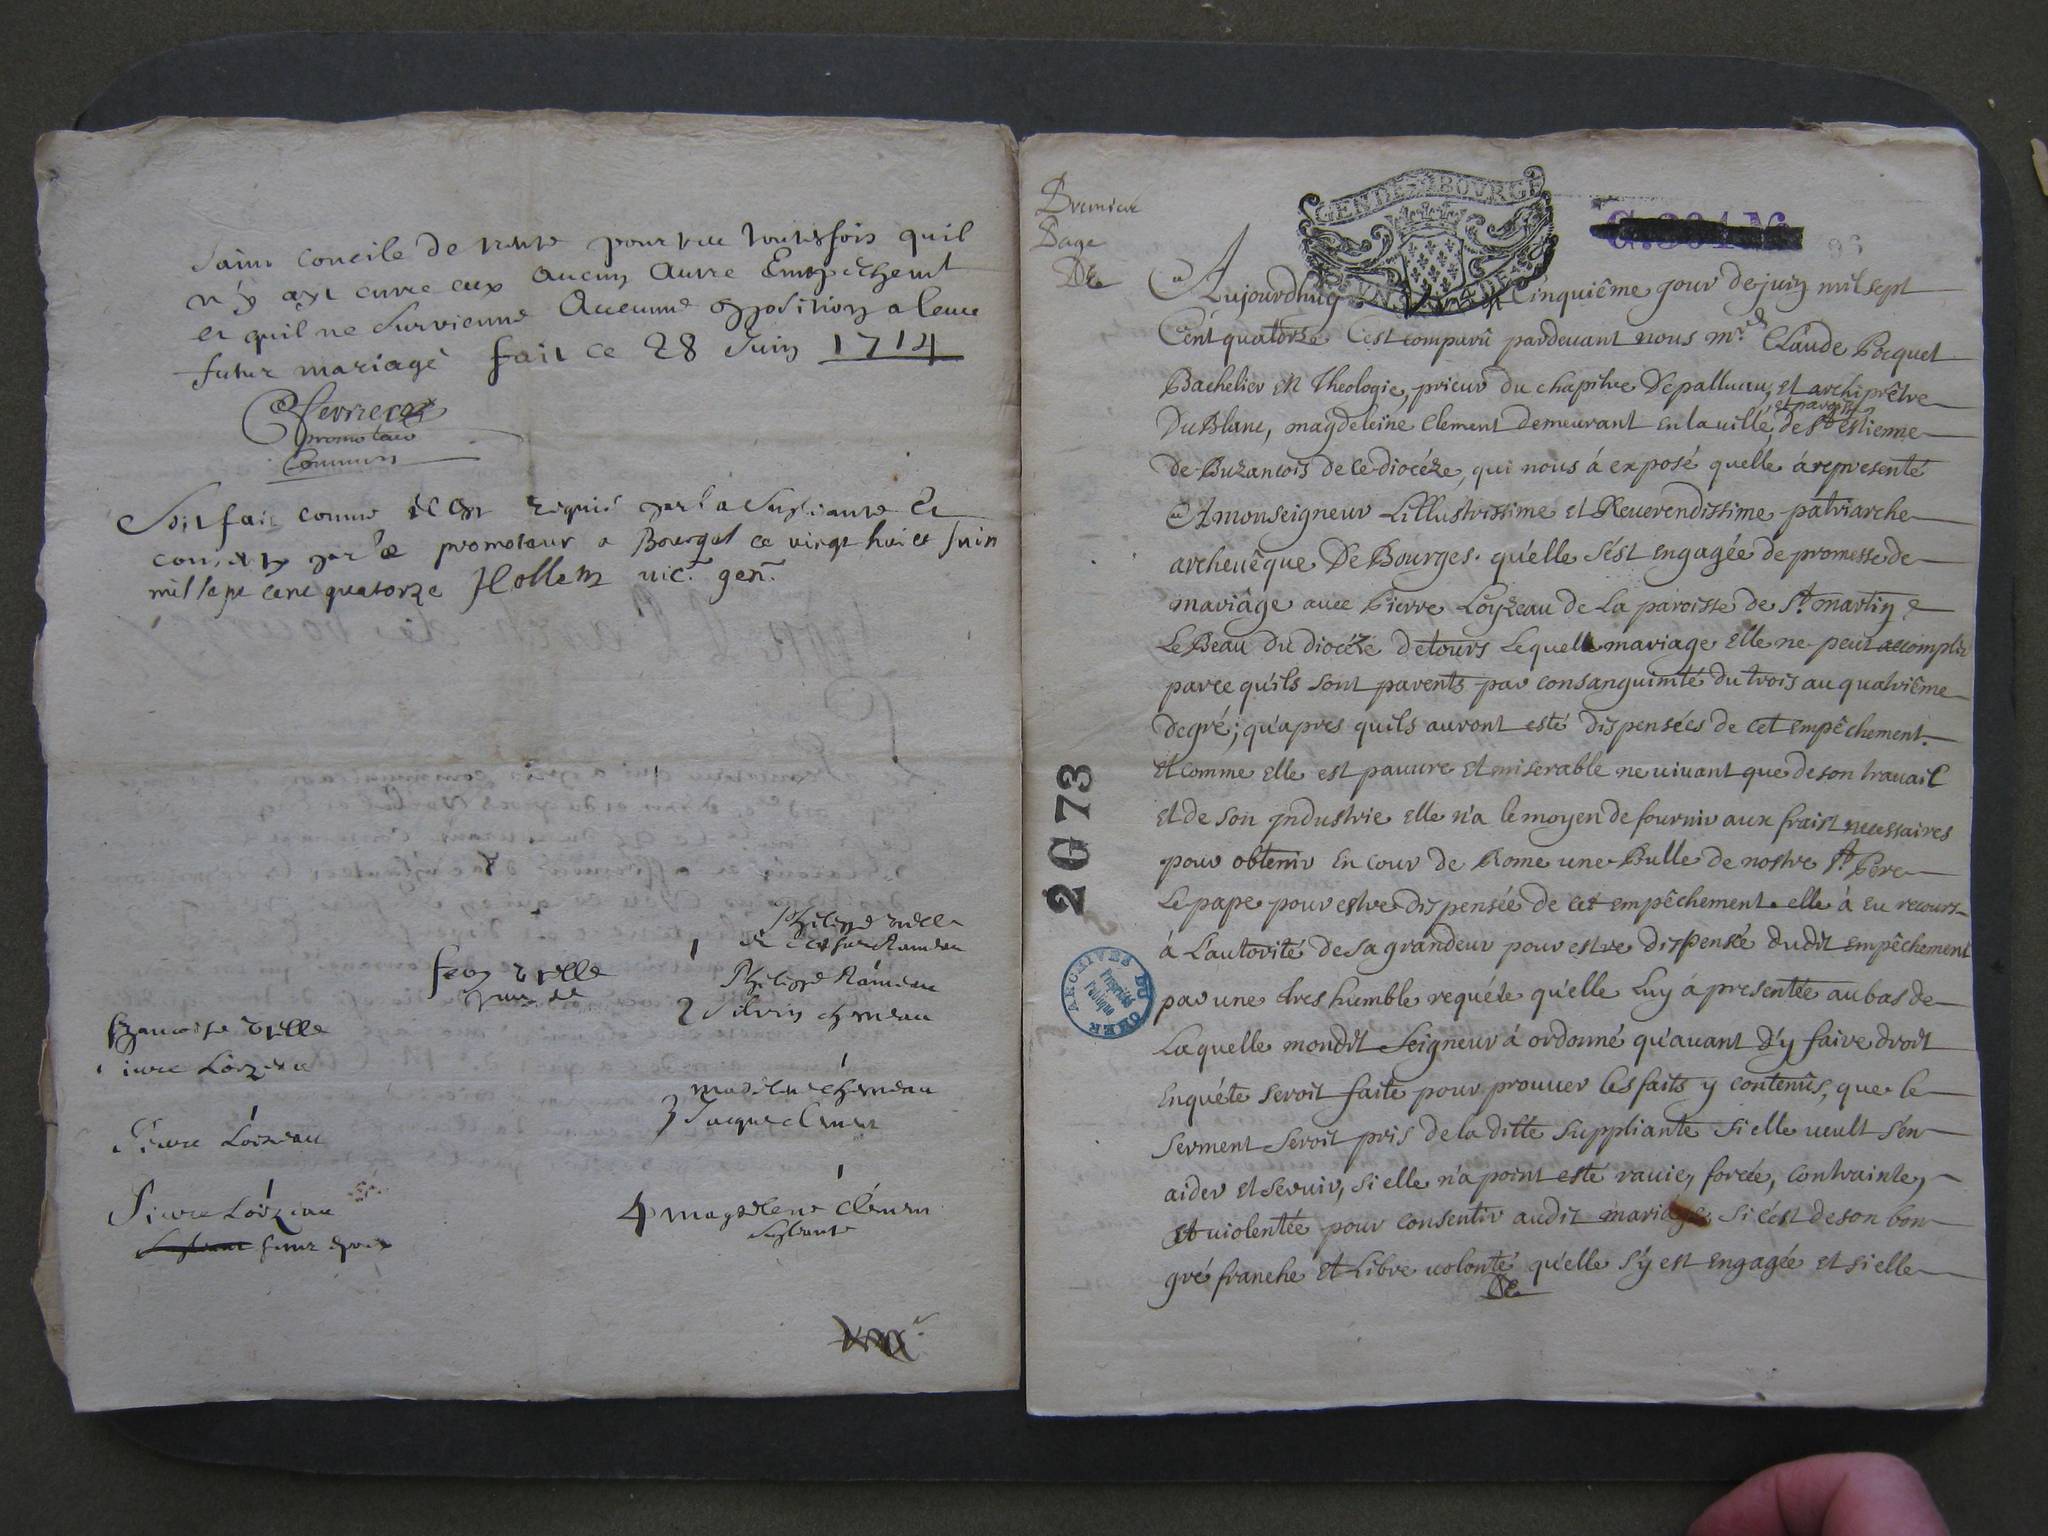 Saint Concile de trente pourvue toutesfois quil
n'y ayt entre eux aucun autre Empechemt
et quil ne survienne Aucunne opposition a leur
futur mariage fait ce 28 Juin 1714
Ferrier
promoteur
Commun
Soit fait comme il est requis par la Supliante et
consenty par le promoteur a Bourges ce vingt huict Juin
mil sept cent quatorze Hollem vic. gen.
1
Philippe Rameau
2 Silvin
françoise
Pierre Loizeau
3 Jacque Clement
Pierre Loizeau
Pierre Loizeau
4 magdelene Clement
Supliante
futur epoux
Premiere
Page
De
GEN DE BOVRGE
G.304
93
Aujourdhuy Cinquiême jour de juin mil sept
Cent quatorze C'est comparû pardevant nous mre Claude Pocquet
Bachelier en Theologie, prieur du chapitre De palluau, et archiprêtre
Du Blanc, magdeleine Clement demeurant en la ville, et paroisse de St Estienne
de Buzancois de ce diocéze, qui nous á exposé quelle á representé
A monseigneur Lillustrissime et Reverendissime patriarche
archevêque De Bourges. qu'elle s'est engagée de promesse de
mariâge avec Pierre Loyzeau de La paroisse de St. martin
Le Beau du diocéze de tours Lequell mariage elle ne peut accomplir
parce qu'ils sont parents par consanguinité du trois au quatriême
degré; qu'apres quils auront esté dispensées de cet empêchement.
et comme elle est pauvre et miserable ne vivant que de son travail
et de son industrie elle n'a le moyen de fournir aux fraist necessaires
pour obtenir en cour de Rome une Bulle de nostre St. Pere
Le pape pour estre dispensée de cet empêchement. elle á eu recours
á L'autorité de sa grandeur pour estre dispensée dudit empêchement
par une tres humble requéte qu'elle Luy á presentée au bas de
Laquelle mondit Seigneur á ordonné qu'avant d'y faire droit
enquéte seroit faite pour prouver les faits y contenûs, que le
serment seroit pris de la ditte suppliante si elle veult s'en
aider et servir, si elle n'a point esté ravie, forcée, contrainte,
et violentée pour consentir audit mariage, si c'est de son bon
gré franche et Libre volonté qu'elle s'y est engagée et si elle
2G73
ARCHIVES DU CHER
Propriété Publique